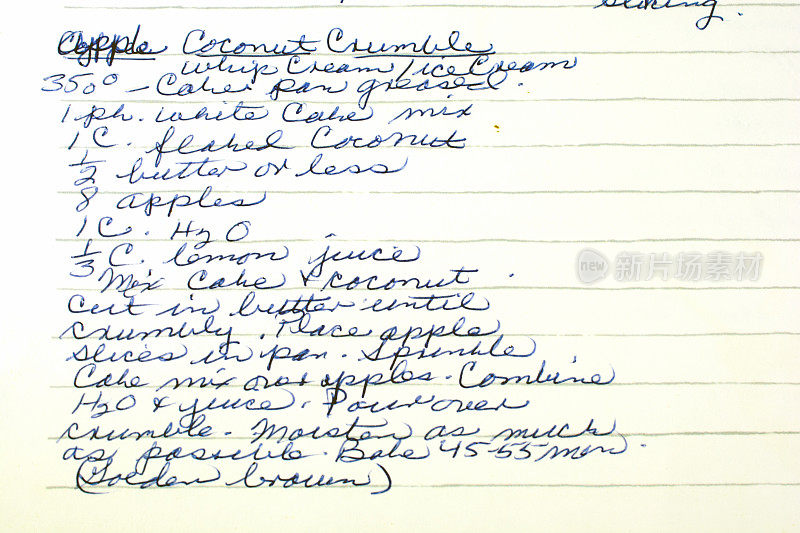 slicing.
Apple Coconut Crumble
whip Cream/ice Cream
350° - Cake pan greased.
1 pk. white Cake mix
1 C. flaked Coconut
1/2 butter or less
8 apples
1 C. H2O
1/3 C. lemon juice
Mix Cake & coconut.
Cut in butter until
crumbly. Place apple
slices in pan. Sprinkle
Cake mix over apples. Combine
H2O & juice. Pour over
crumble. Moisten as much
as possible. Bake 45-55 min.
(Golden brown)
new 新片场素材